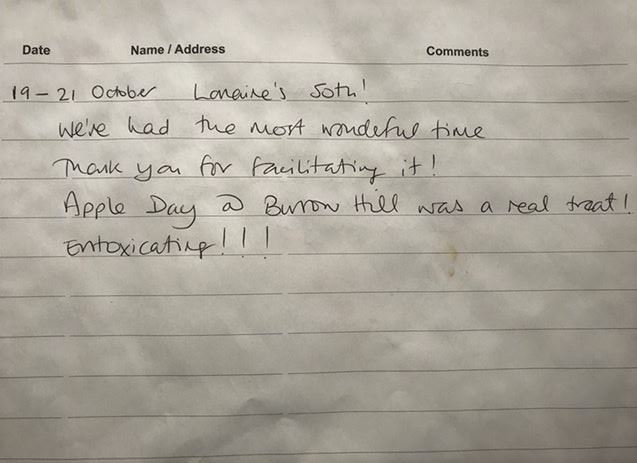 Date Name / Address Comments
19 – 21 October Lorraine's 50th!
We've had the most wondeful time
Thank you for facilitating it!
Apple Day @ Burrow Hill was a real treat!
Entoxicating!!!